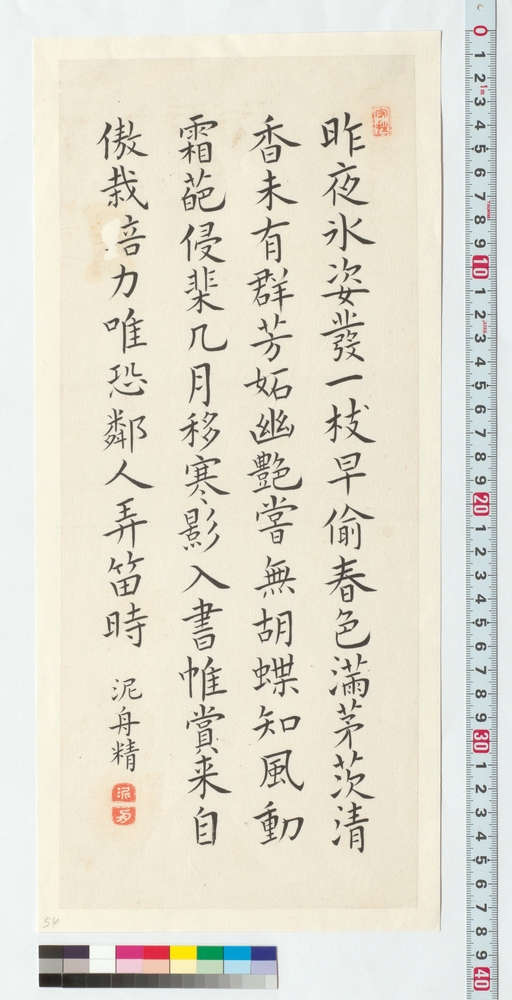 昨夜氷姿發一枝早偷春色滿茅茨清
香未有群芳妬幽艶嘗無胡蝶知風動
霜葩侵棐几月移寒影入書帷賞来自
傲栽培力唯恐鄰人弄笛時
泥舟精
泥舟
0 1 2 3 4 5 6 7 8 9 10 1 2 3 4 5 6 7 8 9 20 1 2 3 4 5 6 7 8 9 30 1 2 3 4 5 6 7 8 9 40
1m
JAPAN
54